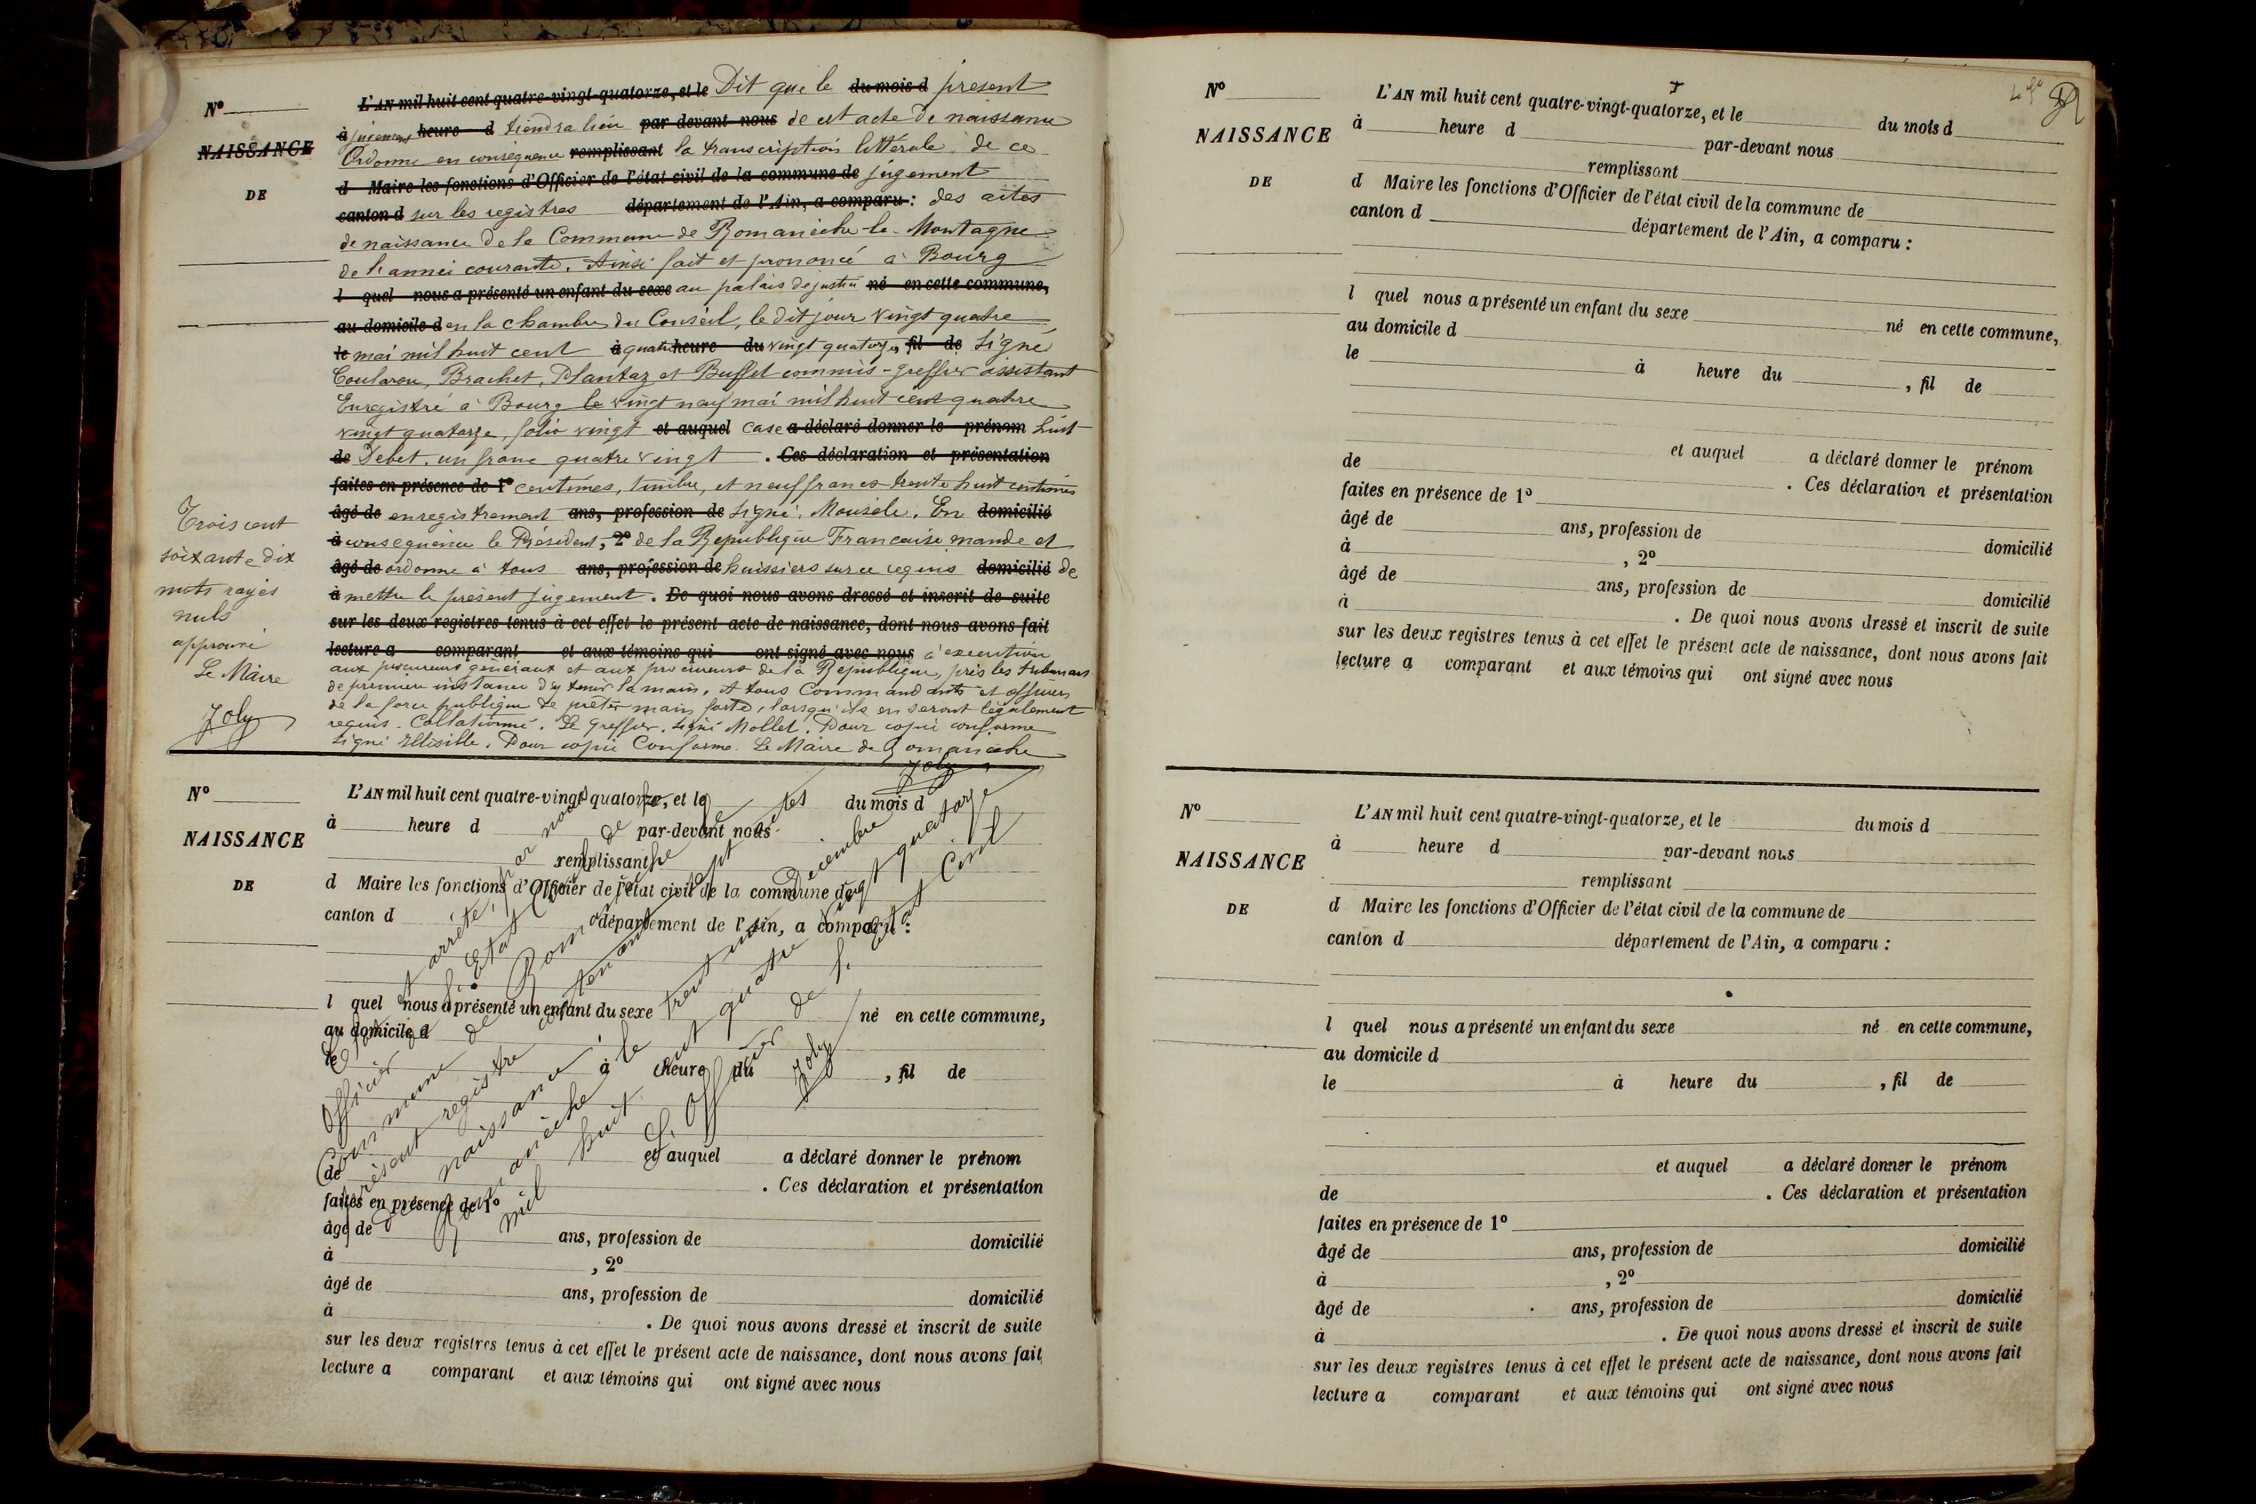 N°
NAISSANCE
DE
L'AN mil huit cent quatre-vingt-quatorze, et le Dit que le du mois d présent
à jugement heure d tiendra lieu par devant nous de cet acte de naissance
Ordonne en conséquence remplissant la transcription littérale de ce
d Maire les fonctions d'Officier de l'état civil de la commune de jugement
canton d sur les registres département de l'Ain, a comparu : des actes
de naissance de la Commune de Romanèche-la-Montagne
de l'année courante. Ainsi fait et prononcé à Bourg
l quel nous a présenté un enfant du sexe au palais de justice né en cette commune,
au domicile d en la chambre du Conseil, le dit jour vingt quatre
le mai mil huit cent à quatre heure du vingt quatorze, fil de Signé
Coularou, Brachet, Plantaz et Buffet commis-greffier assistant
Enregistré à Bourg le vingt neuf mai mil huit cent quatre
vingt quatorze, folio vingt et auquel case a déclaré donner le prénom huit
de Débet. un franc quatre vingt . Ces déclaration et présentation
faites en présence de 1° centimes, timbre, et neuf francs trente huit centimes
âgé de enregistrement ans, profession de Signé. En domicilié
à conséquence le Président, 2° de la République Française mande et
âgé de ordonne à tous ans, profession de huissiers sur ce requis domicilié de
à mettre le présent jugement. De quoi nous avons dressé et inscrit de suite
sur les deux registres tenus à cet effet le présent acte de naissance, dont nous avons fait
lecture a comparant et aux témoins qui ont signé avec nous à exécution
aux procureurs généraux et aux procureurs de la République, près les tribunaux
de première instance d'y tenir la main, et tous Commandants et officiers
de la force publique de prêter main forte, lorsqu'ils en seront légalement
requis. Collationné. Le Greffier, signé Mollet. Pour copie conforme
signé Illisible. Pour copie Conforme. Le Maire de Romanèche
Joly
Trois cent
soixante dix
mots rayés
nuls
approuvé
Le Maire
Joly
N°
NAISSANCE
DE
L'AN mil huit cent quatre-vingt-quatorze, et le du mois d
à heure d par-devant nous
remplissant
d Maire les fonctions d'Officier de l'état civil de la commune de
canton d département de l'Ain, a comparu :
l quel nous a présenté un enfant du sexe né en cette commune,
au domicile d
le à heure du , fil de
et auquel a déclaré donner le prénom
de . Ces déclaration et présentation
faites en présence de 1°
âgé de ans, profession de domicilié
à , 2°
âgé de ans, profession de domicilié
à . De quoi nous avons dressé et inscrit de suite
sur les deux registres tenus à cet effet le présent acte de naissance, dont nous avons fait
lecture a comparant et aux témoins qui ont signé avec nous
et arrêté, par nous
Officier de l'Etat Civil de la
Commune de Romanèche le
présent registre contenant sept actes
de naissance
Romanèche le trent un Décembre
mil huit cent quatre vingt quatorze
L'Officier de l'état Civil
Joly
N°
NAISSANCE
DE
L'AN mil huit cent quatre-vingt-quatorze, et le du mois d
à heure d par-devant nous
remplissant
d Maire les fonctions d'Officier de l'état civil de la commune de
canton d département de l'Ain, a comparu :
l quel nous a présenté un enfant du sexe né en cette commune,
au domicile d
le à heure du , fil de
et auquel a déclaré donner le prénom
de . Ces déclaration et présentation
faites en présence de 1°
âgé de ans, profession de domicilié
à , 2°
âgé de ans, profession de domicilié
à . De quoi nous avons dressé et inscrit de suite
sur les deux registres tenus à cet effet le présent acte de naissance, dont nous avons fait
lecture a comparant et aux témoins qui ont signé avec nous
N°
NAISSANCE
DE
L'AN mil huit cent quatre-vingt-quatorze, et le du mois d
à heure d par-devant nous
remplissant
d Maire les fonctions d'Officier de l'état civil de la commune de
canton d département de l'Ain, a comparu :
l quel nous a présenté un enfant du sexe né en cette commune,
au domicile d
le à heure du , fil de
et auquel a déclaré donner le prénom
de . Ces déclaration et présentation
faites en présence de 1°
âgé de ans, profession de domicilié
à , 2°
âgé de ans, profession de domicilié
à . De quoi nous avons dressé et inscrit de suite
sur les deux registres tenus à cet effet le présent acte de naissance, dont nous avons fait
lecture a comparant et aux témoins qui ont signé avec nous